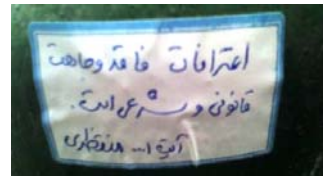 اعترافات فاقد وجاهت
قانونی و شرعی است.
آیت ا... منتظری